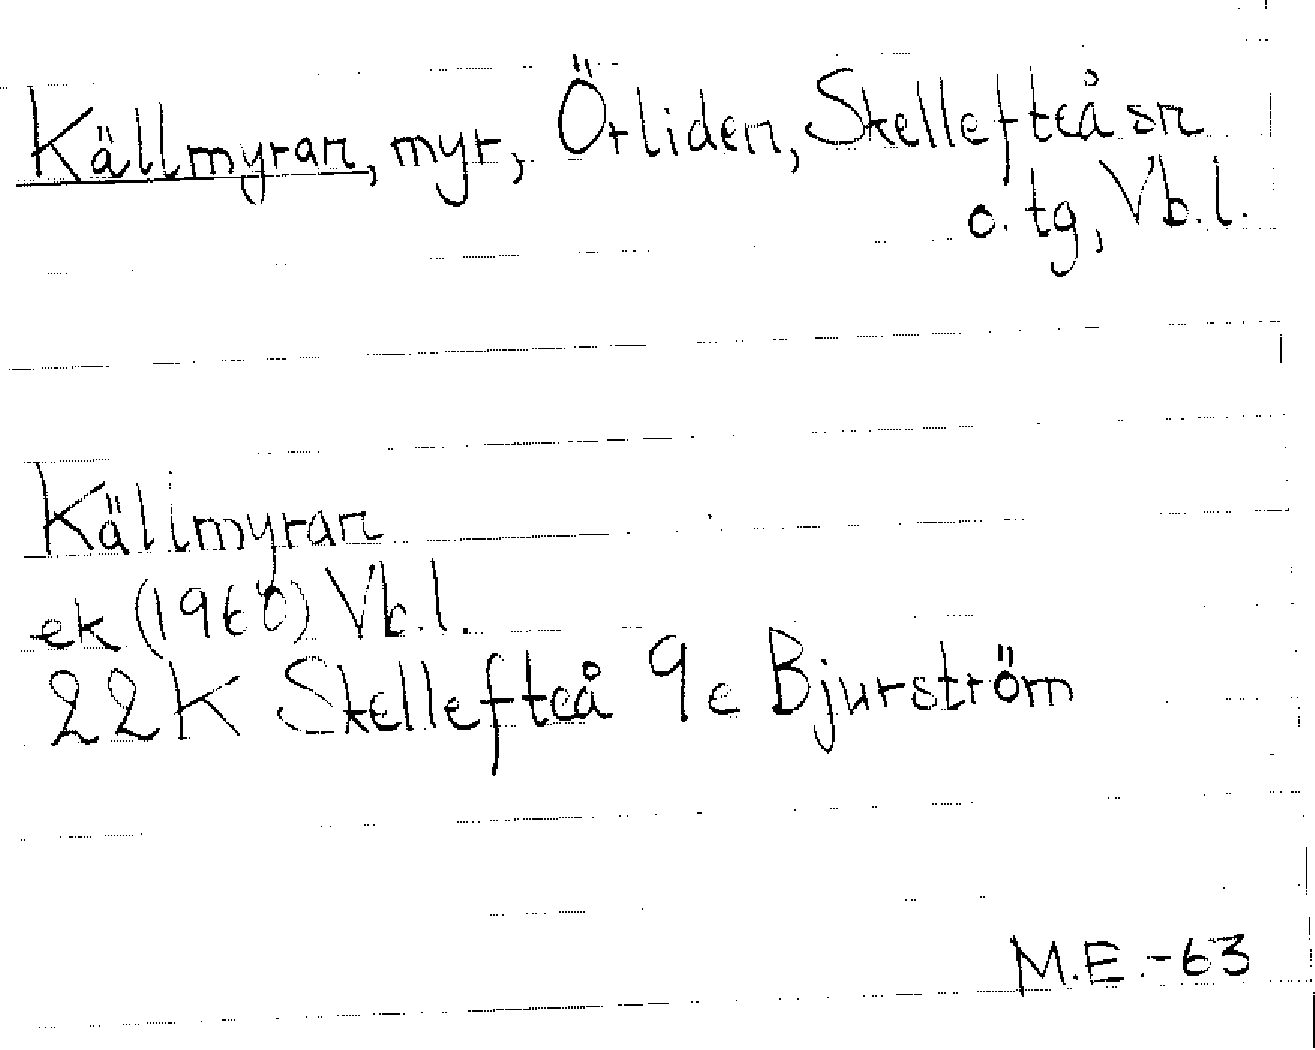 Källmyran, myr, Örliden, Skellefteå sn
o. tg, Vb. l.
Källmyran
ek (1960) Vb. l.
22K Skellefteå 9e Bjurström
M.E.-63